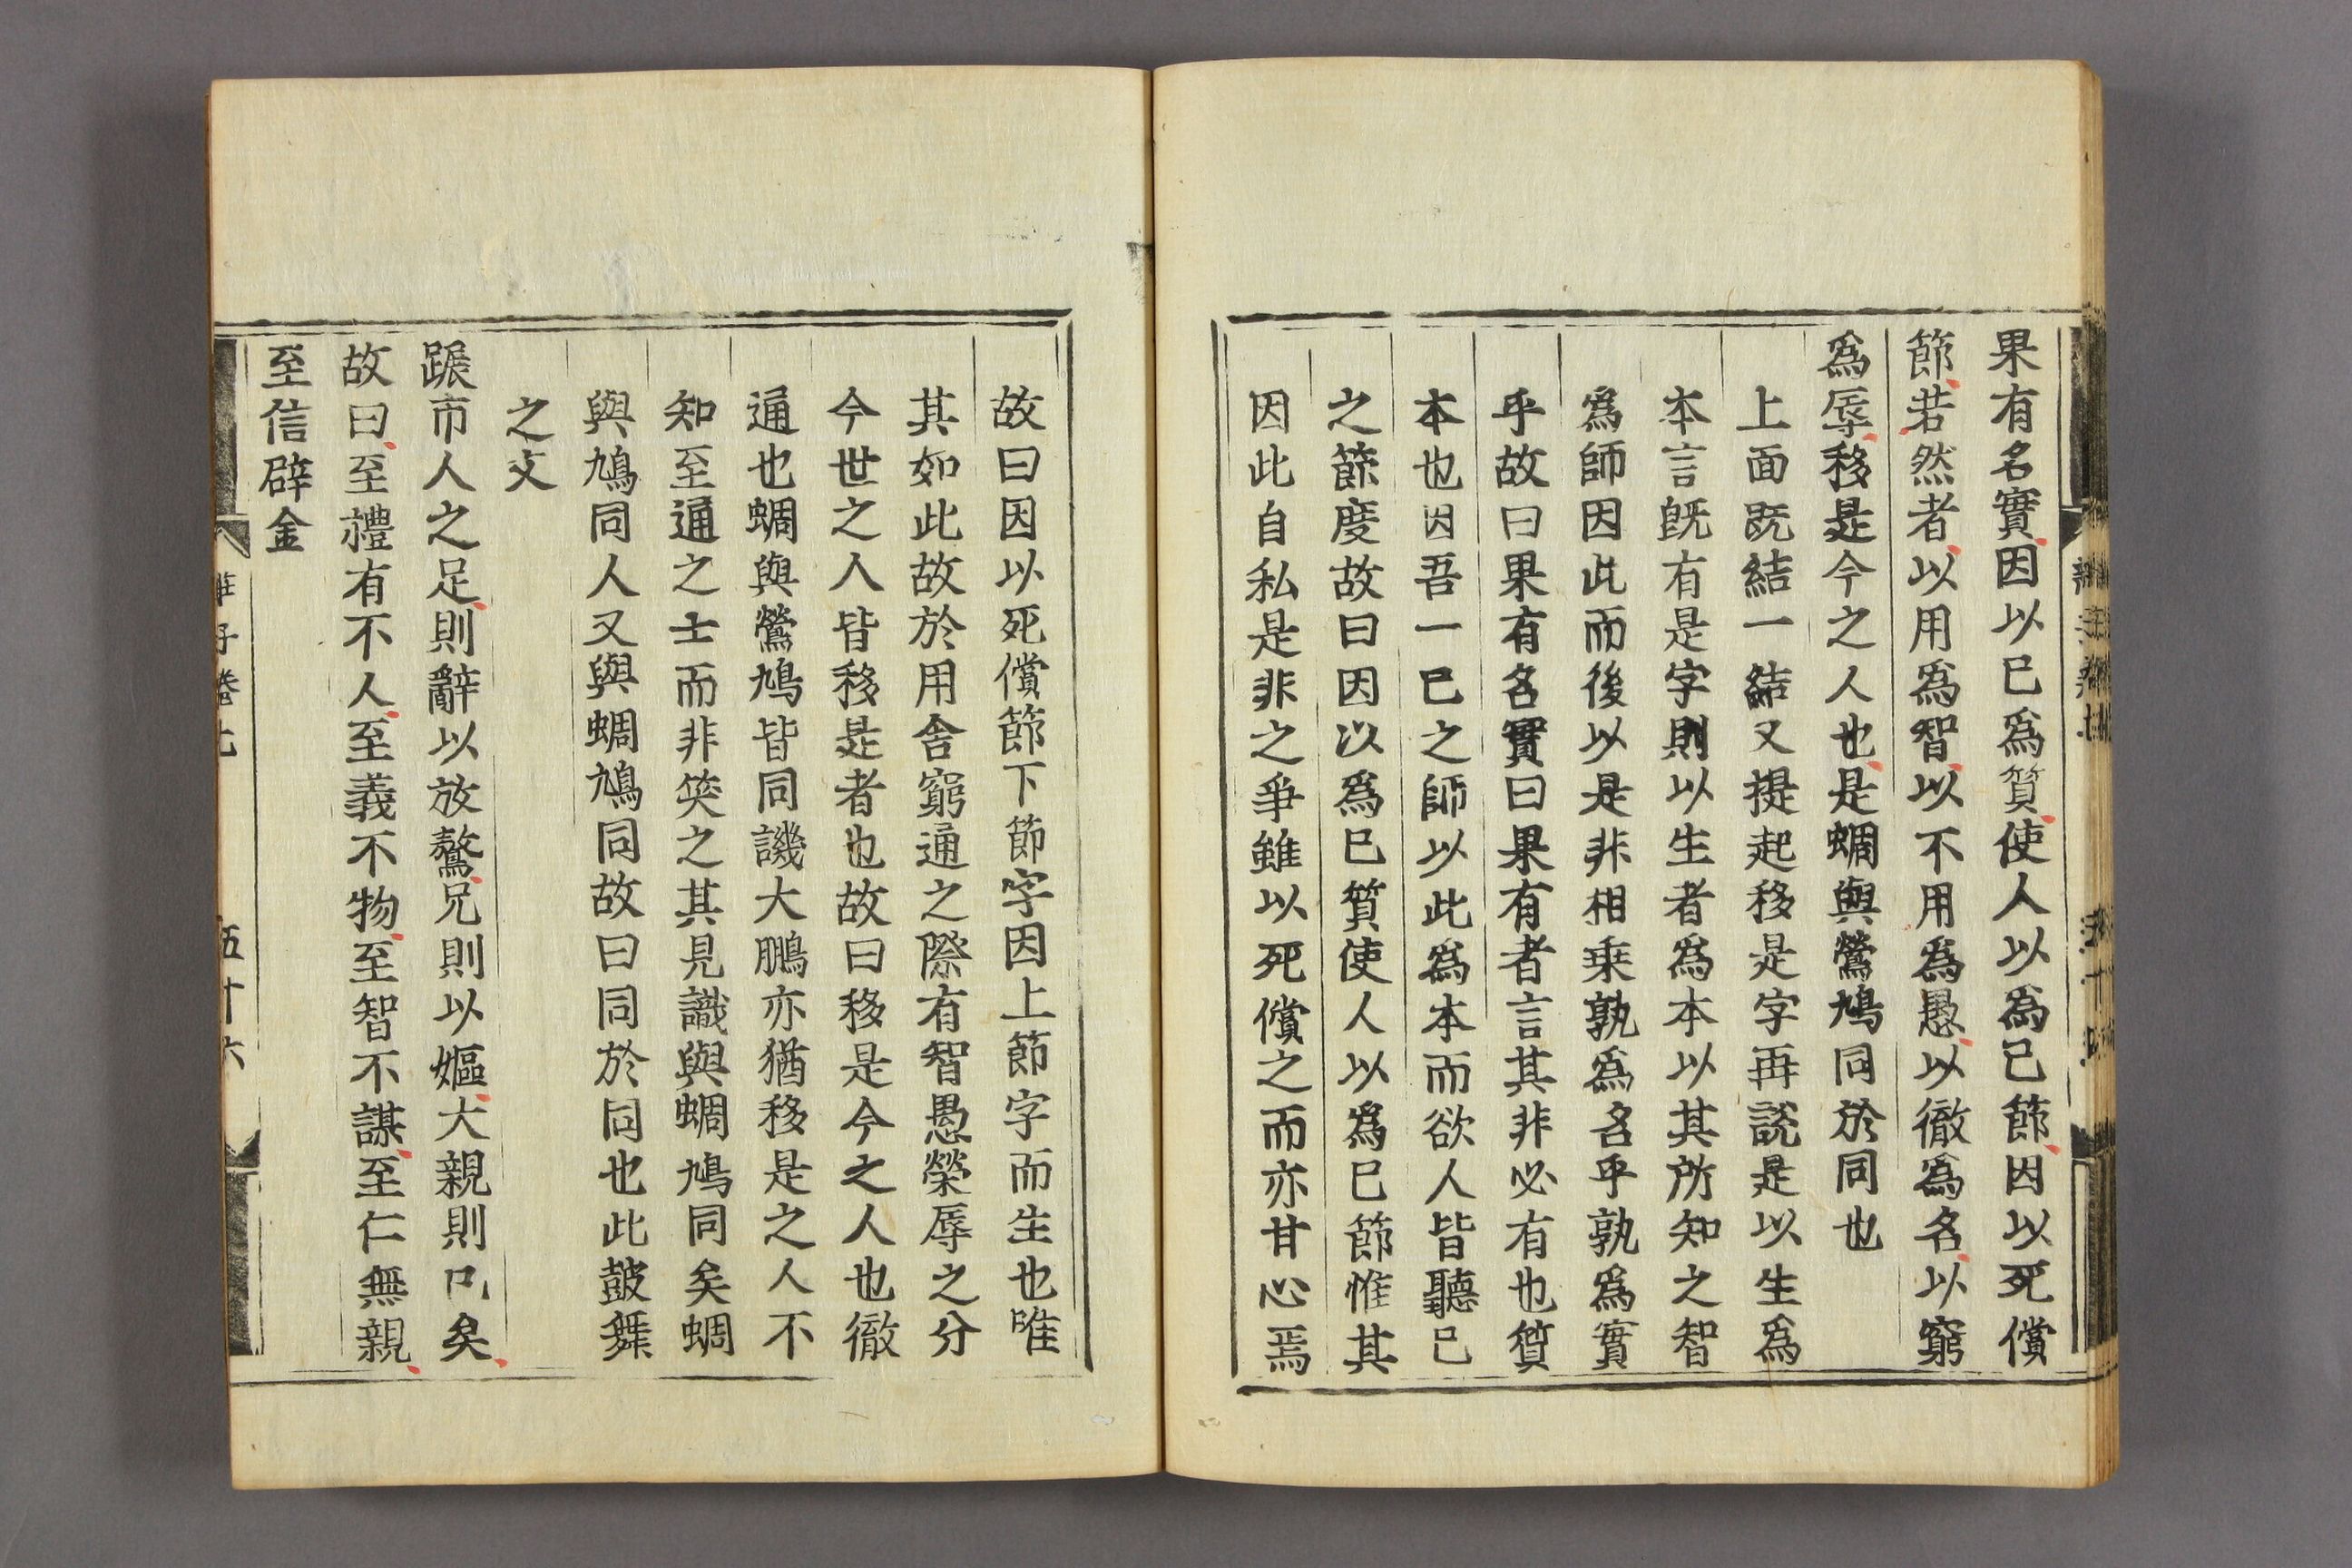 果有名實因以已爲質使人以爲已節因以死償
節若然者以用爲智以不用爲愚以徹爲名以窮
爲辱移是今之人也是蜩與鶯鳩同於同也
上面旣結一結又提起移是字再說是以生爲
本言旣有是字則以生者爲本以其所知之智
爲師因此而後以是非相乗孰爲名乎孰爲實
乎故曰果有名實曰果有者言其非必有也質
本也因吾一已之師以此爲本而欲人皆聽已
之節度故曰因以爲已質使人以爲已節惟其
因此自私是非之爭雖以死償之而亦甘心焉
故曰因以死償節下節字因上節字而生也唯
其如此故於用舍窮通之際有智愚榮辱之分
今世之人皆移是者也故曰移是今之人也徹
通也蜩與鶯鳩皆同譏大鵬亦猶移是之人不
知至通之士而非笑之其見識與蜩鳩同矣蜩
與鳩同人又與蜩鳩同故曰同於同也此鼓舞
之文
蹍市人之足則辭以放驁兄則以嫗大親則已矣
故曰至禮有不人至義不物至智不謀至仁無親
至信辟金
莊子卷七
五十六